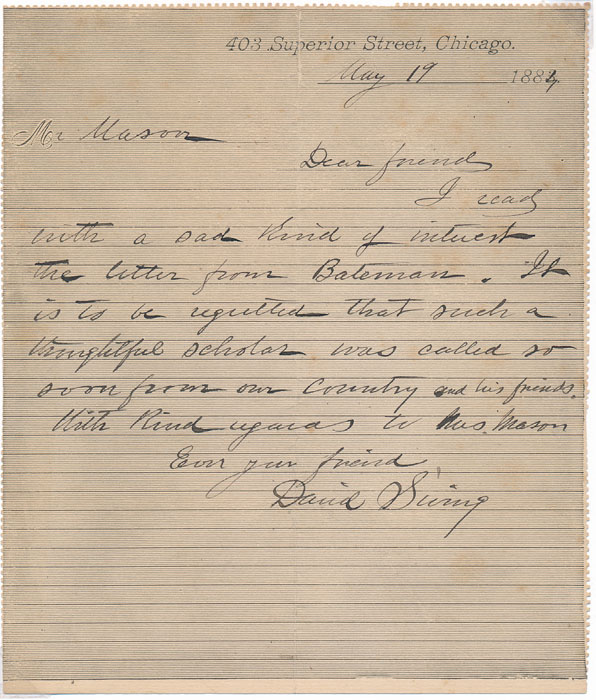 403 Superior Street, Chicago.
May 19 1884
Mr Mason
Dear friend
I read
with a sad kind of interest
the letter from Bateman. It
is to be regretted that such a
thoughtful scholar was called so
soon from our country and his friends.
With kind regards to Mrs. Mason
Ever your friend
David Swing